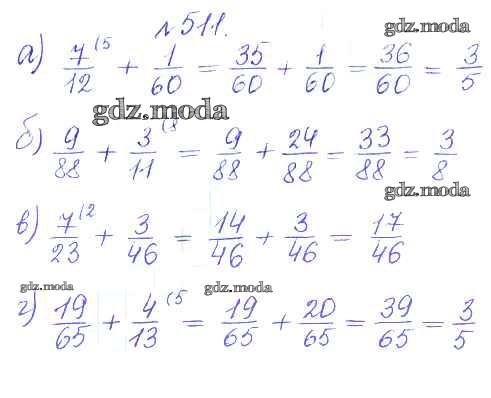 №511.
gdz.moda
а) 7/12 (5 + 1/60 = 35/60 + 1/60 = 36/60 = 3/5
gdz.moda
б) 9/88 + 3/11 (8 = 9/88 + 24/88 = 33/88 = 3/8
gdz.moda
в) 7/23 (2 + 3/46 = 14/46 + 3/46 = 17/46
gdz.moda gdz.moda
г) 19/65 + 4/13 (5 = 19/65 + 20/65 = 39/65 = 3/5